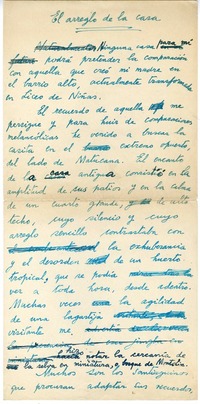 El arreglo de la casa
Ninguna casa para mi
podrá pretender la comparación
con aquella que creó mi madre en
el barrio alto, actualmente transformada
en Liceo de Niñas.
El recuerdo de aquella me
persigue y para huir de comparaciones
melancólicas he venido a buscar la
casita en el extremo opuesto,
del lado de Matucana. El encanto
de la casa antigua consistió en la
amplitud de sus patios y en la calma
de un cuarto grande, de alto
techo, cuyo silencio y cuyo
arreglo sencillo contrastaba con
la exhuberancia
y el desorden de un huerto
tropical, que se podía
ver a toda hora, desde adentro.
Muchas veces la agilidad
de una lagartija
visitante me
hizo notar la cercanía de
la selva en miniatura,
Muchos son los Santiaguinos
que procuran adaptar sus recuerdos,